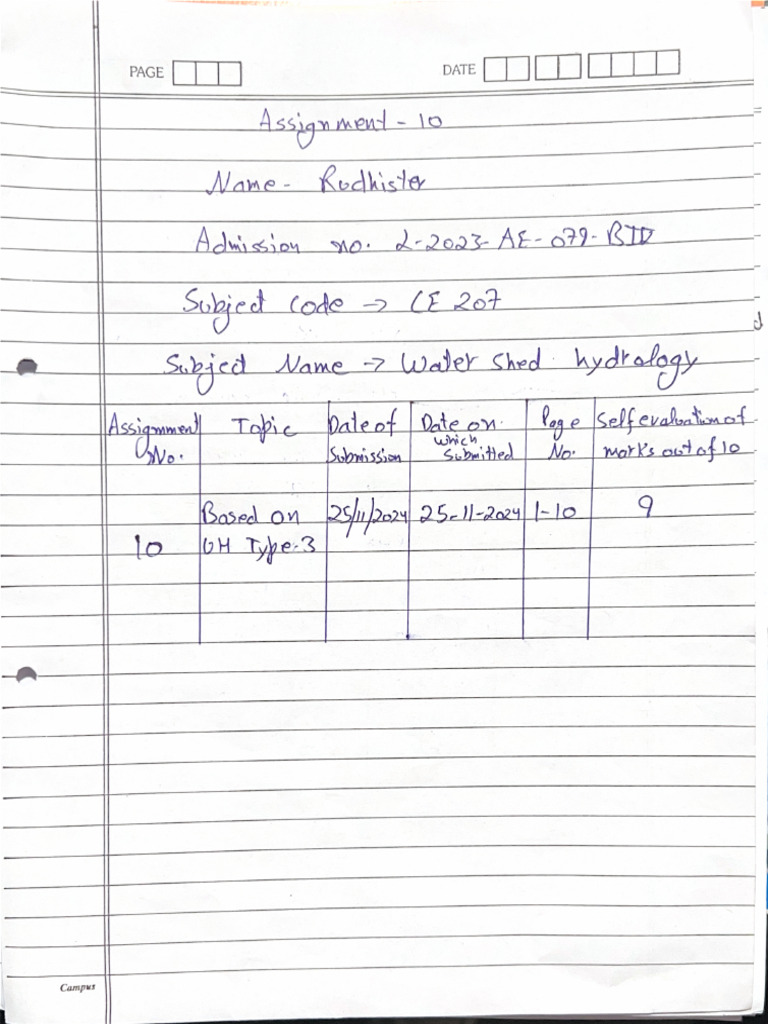 PAGE
DATE
Assignment - 10
Name - Rudhister
Admission no. L-2023-AE-079-BID
Subject code → CE 207
Subject Name → Water shed hydrology
Assignment No. Topic Date of Submission Date on which Submitted Page No. Self evaluation of marks out of 10
10 Based on UH Type-3 25/11/2024 25-11-2024 1-10 9
Campus